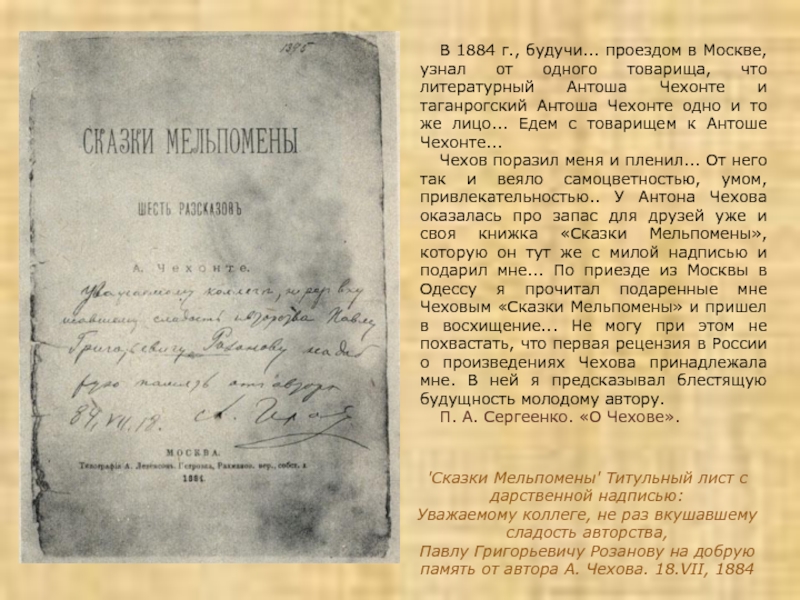 1395
СКАЗКИ МЕЛЬПОМЕНЫ
ШЕСТЬ РАЗСКАЗОВЪ
А. Чехонте.
Уважаемому коллеге, не раз вку
шавшему сладость авторства Павлу
Григорьевичу Розанову на доб
рую память от автора
84, VII, 18. А. Чехов
МОСКВА.
Типографія А. Левенсонъ, Петровка, Рахманов. пер., собст. д.
1884.
В 1884 г., будучи... проездом в Москве,
узнал от одного товарища, что
литературный Антоша Чехонте и
таганрогский Антоша Чехонте одно и то
же лицо... Едем с товарищем к Антоше
Чехонте...
Чехов поразил меня и пленил... От него
так и веяло самоцветностью, умом,
привлекательностью.. У Антона Чехова
оказалась про запас для друзей уже и
своя книжка «Сказки Мельпомены»,
которую он тут же с милой надписью и
подарил мне... По приезде из Москвы в
Одессу я прочитал подаренные мне
Чеховым «Сказки Мельпомены» и пришел
в восхищение... Не могу при этом не
похвастать, что первая рецензия в России
о произведениях Чехова принадлежала
мне. В ней я предсказывал блестящую
будущность молодому автору.
П. А. Сергеенко. «О Чехове».
'Сказки Мельпомены' Титульный лист с
дарственной надписью:
Уважаемому коллеге, не раз вкушавшему
сладость авторства,
Павлу Григорьевичу Розанову на добрую
память от автора А. Чехова. 18.VII, 1884